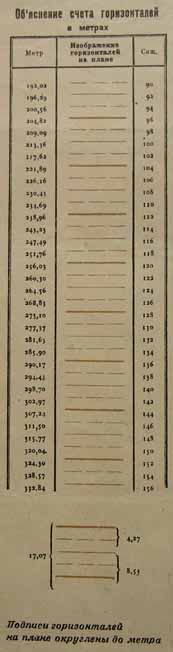 Об'яснение счета горизонталей
в метрах
Метр Изображение горизонталей на плане Саж.
192,02 90
196,29 92
200,56 94
204,82 96
209,09 98
213,36 100
217,62 102
221,89 104
226,16 106
230,43 108
234,69 110
238,96 112
243,23 114
247,49 116
251,76 118
256,03 120
260,30 122
264,56 124
268,83 126
273,10 128
277,37 130
281,63 132
285,90 134
290,17 136
294,43 138
298,70 140
302,97 142
307,23 144
311,50 146
315,77 148
320,04 150
324,30 152
328,57 154
332,84 156
4,27
17,07
8,53
Подписи горизонталей
на плане округлены до метра